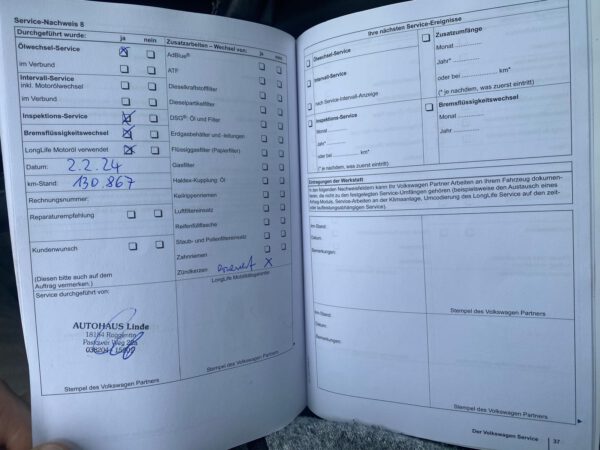 Service-Nachweis 8
Durchgeführt wurde: ja nein
Ölwechsel-Service
im Verbund
Intervall-Service
inkl. Motorölwechsel
im Verbund
Inspektions-Service
Bremsflüssigkeitswechsel
LongLife Motoröl verwendet
Datum: 2.2.24
km-Stand: 130.867
Rechnungsnummer:
Reparaturempfehlung
Kundenwunsch
(Diesen bitte auch auf dem
Auftrag vermerken.)
Service durchgeführt von:
AUTOHAUS Linde
18184 Roggentin
Stempel des Volkswagen Partners
Zusatzarbeiten – Wechsel von: ja nein
AdBlue®
ATF
Dieselkraftstofffilter
Dieselpartikelfilter
DSG®: Öl und Filter
Erdgasbehälter und -leitungen
Flüssiggasfilter (Papierfilter)
Gasfilter
Haldex-Kupplung: Öl
Keilrippenriemen
Luftfiltereinsatz
Reifenfüllflasche
Staub- und Pollenfiltereinsatz
Zahnriemen
Zündkerzen
LongLife Mobilitätsgarantie
Stempel des Volkswagen Partners
Ihre nächsten Service-Ereignisse
Ölwechsel-Service
Intervall-Service
nach Service-Intervall-Anzeige
Inspektions-Service
Monat
Jahr*
oder bei km*
(* je nachdem, was zuerst eintritt)
Zusatzumfänge
Monat
Jahr*
oder bei km*
(* je nachdem, was zuerst eintritt)
Bremsflüssigkeitswechsel
Monat
Jahr
Eintragungen der Werkstatt
In den folgenden Nachweisfeldern kann Ihr Volkswagen Partner Arbeiten an Ihrem Fahrzeug dokumentieren,
die nicht zu den festgelegten Service-Umfängen gehören (beispielsweise den Austausch eines
Airbag-Moduls, Service-Arbeiten an der Klimaanlage, Umcodierung des LongLife Service auf den zeit-
oder laufleistungsabhängigen Service).
km-Stand:
Datum:
Bemerkungen:
Stempel des Volkswagen Partners
km-Stand:
Datum:
Bemerkungen:
Stempel des Volkswagen Partners
Der Volkswagen Service 37